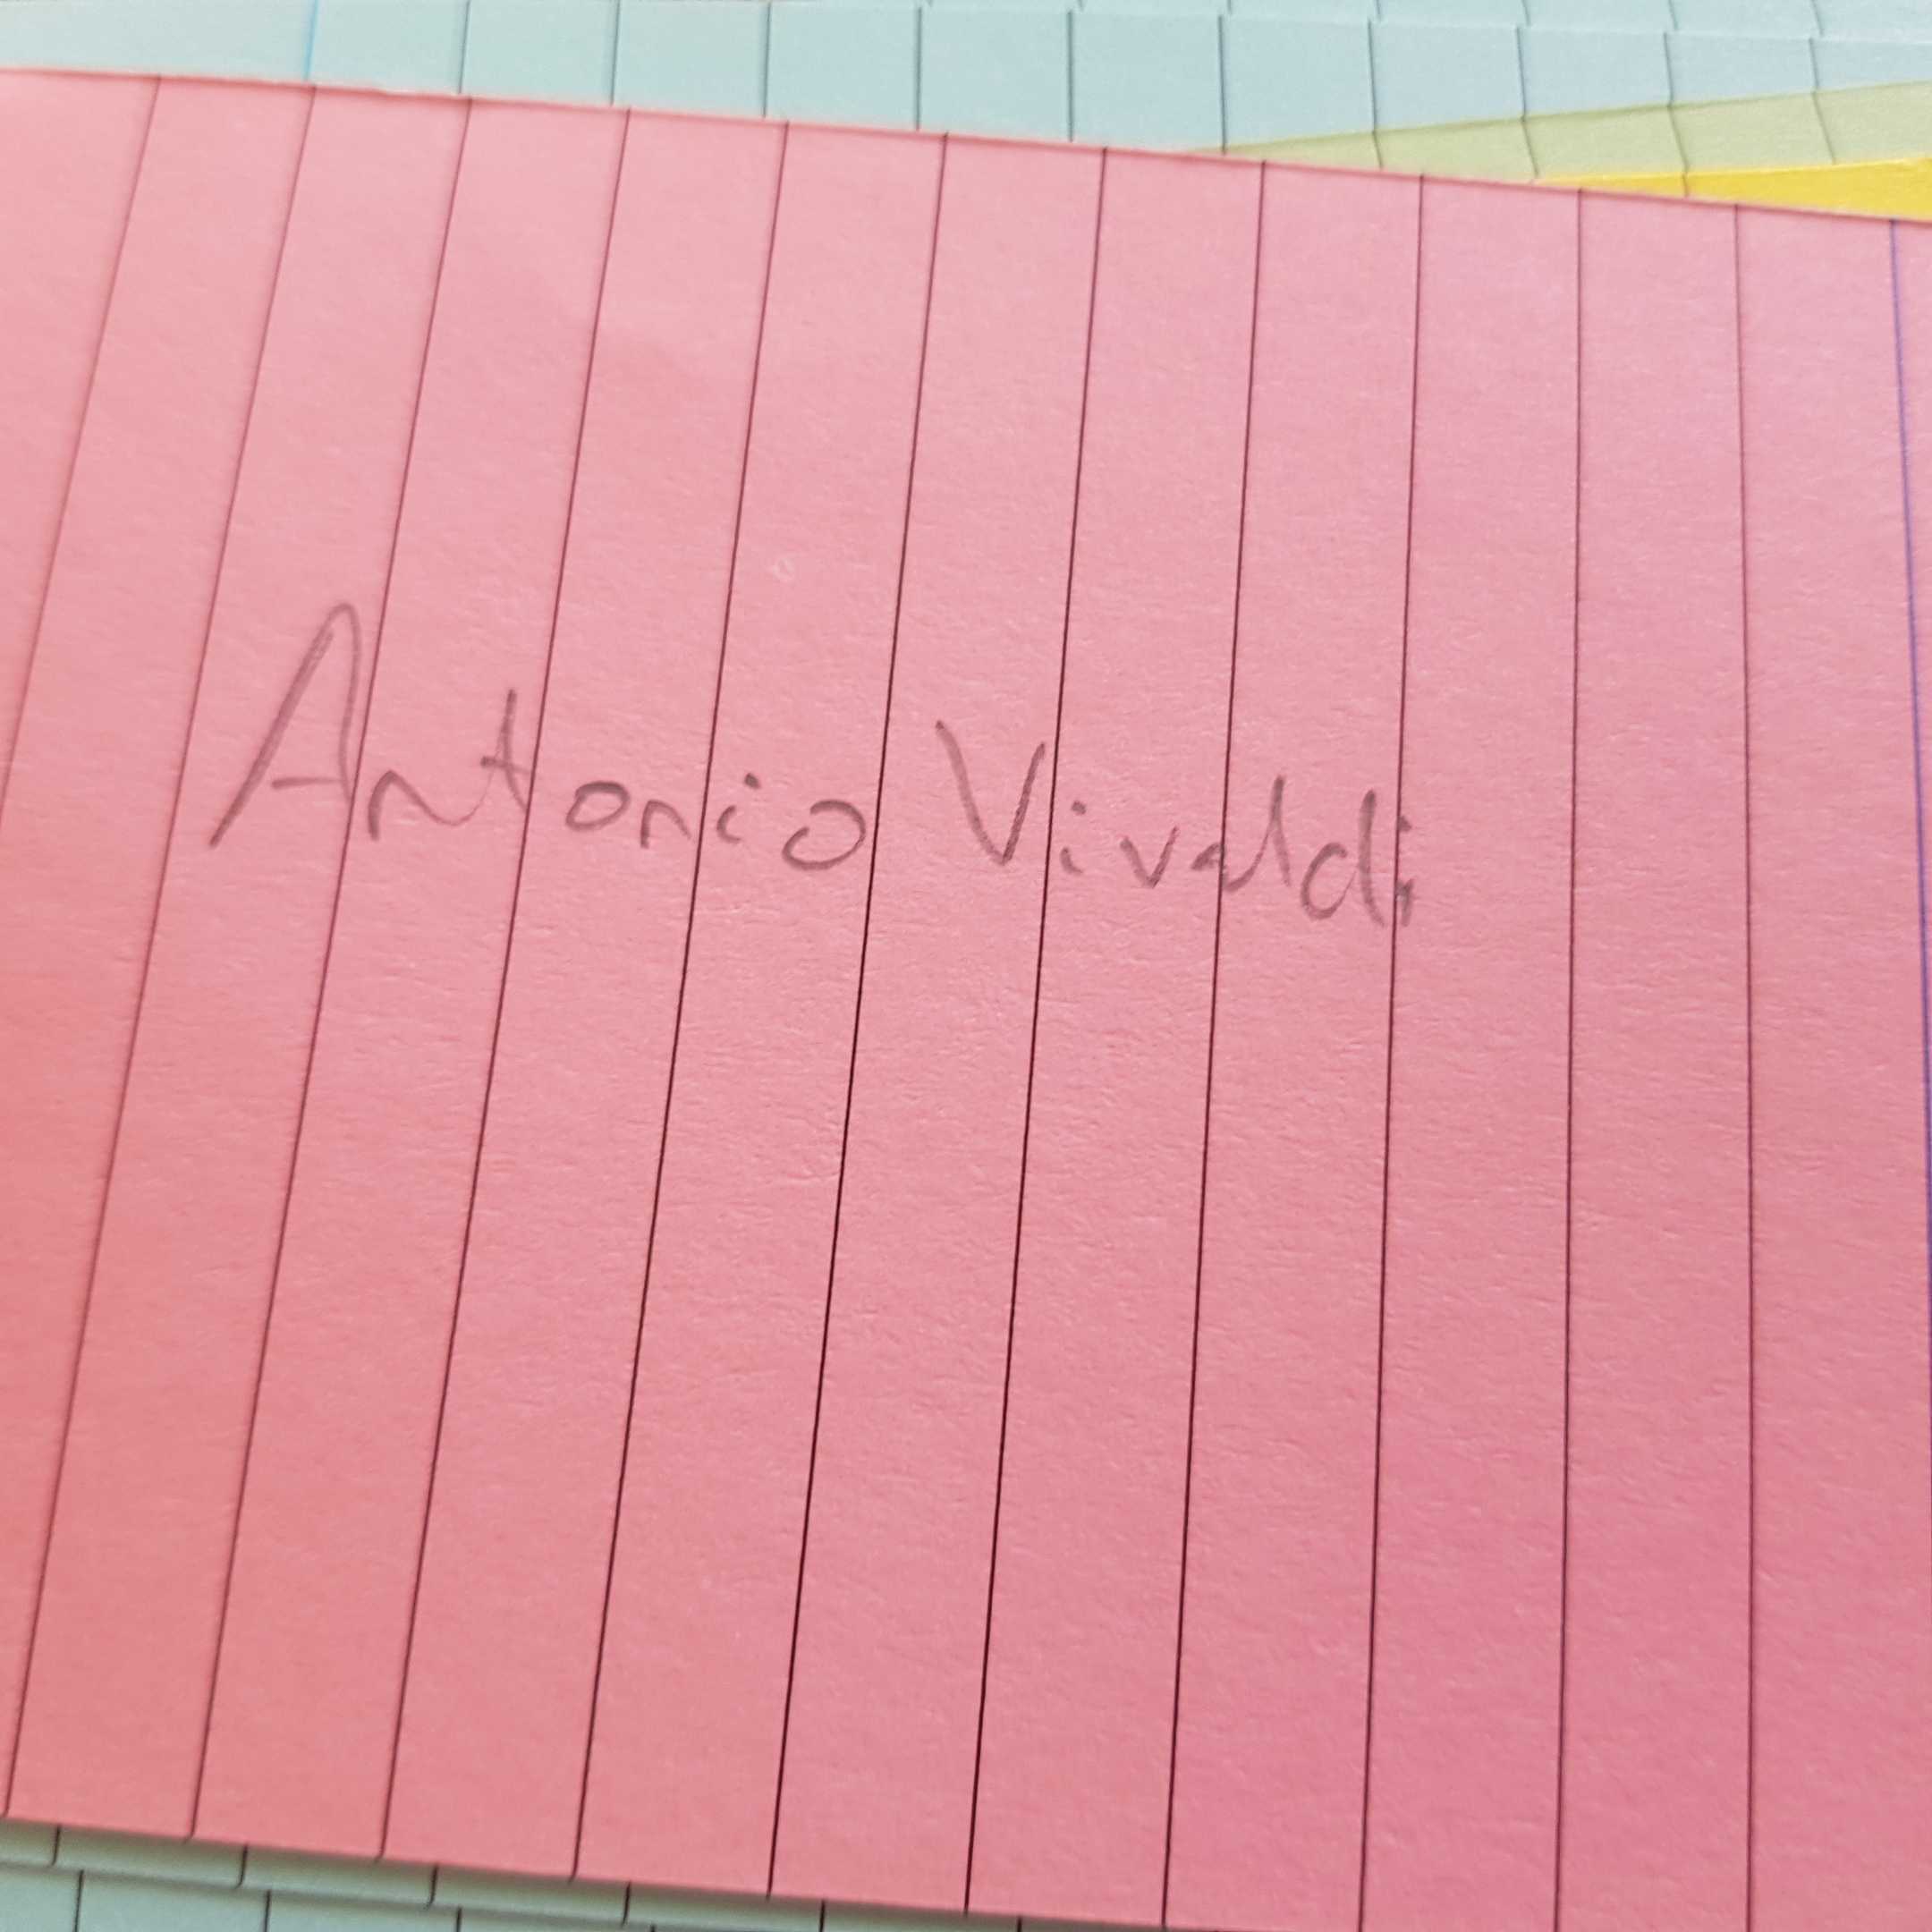 Antonio Vivaldi